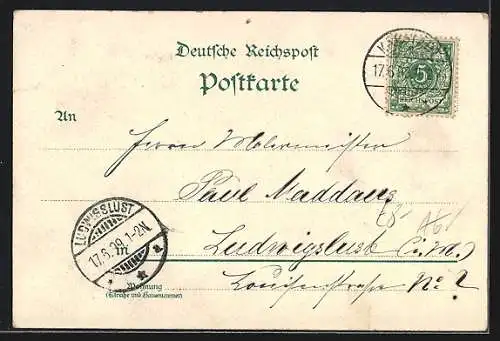 Deutsche Reichspost
Postkarte
17.6
5
REICHSPOST
An
Herrn Malermeister
Paul Maddaus
LUDWIGSLUST
17.6.99.1-2N.
a
in
Ludwigslust i. M.
Louisenstraße No. 2
Wohnung
(Straße und Hausnummer)